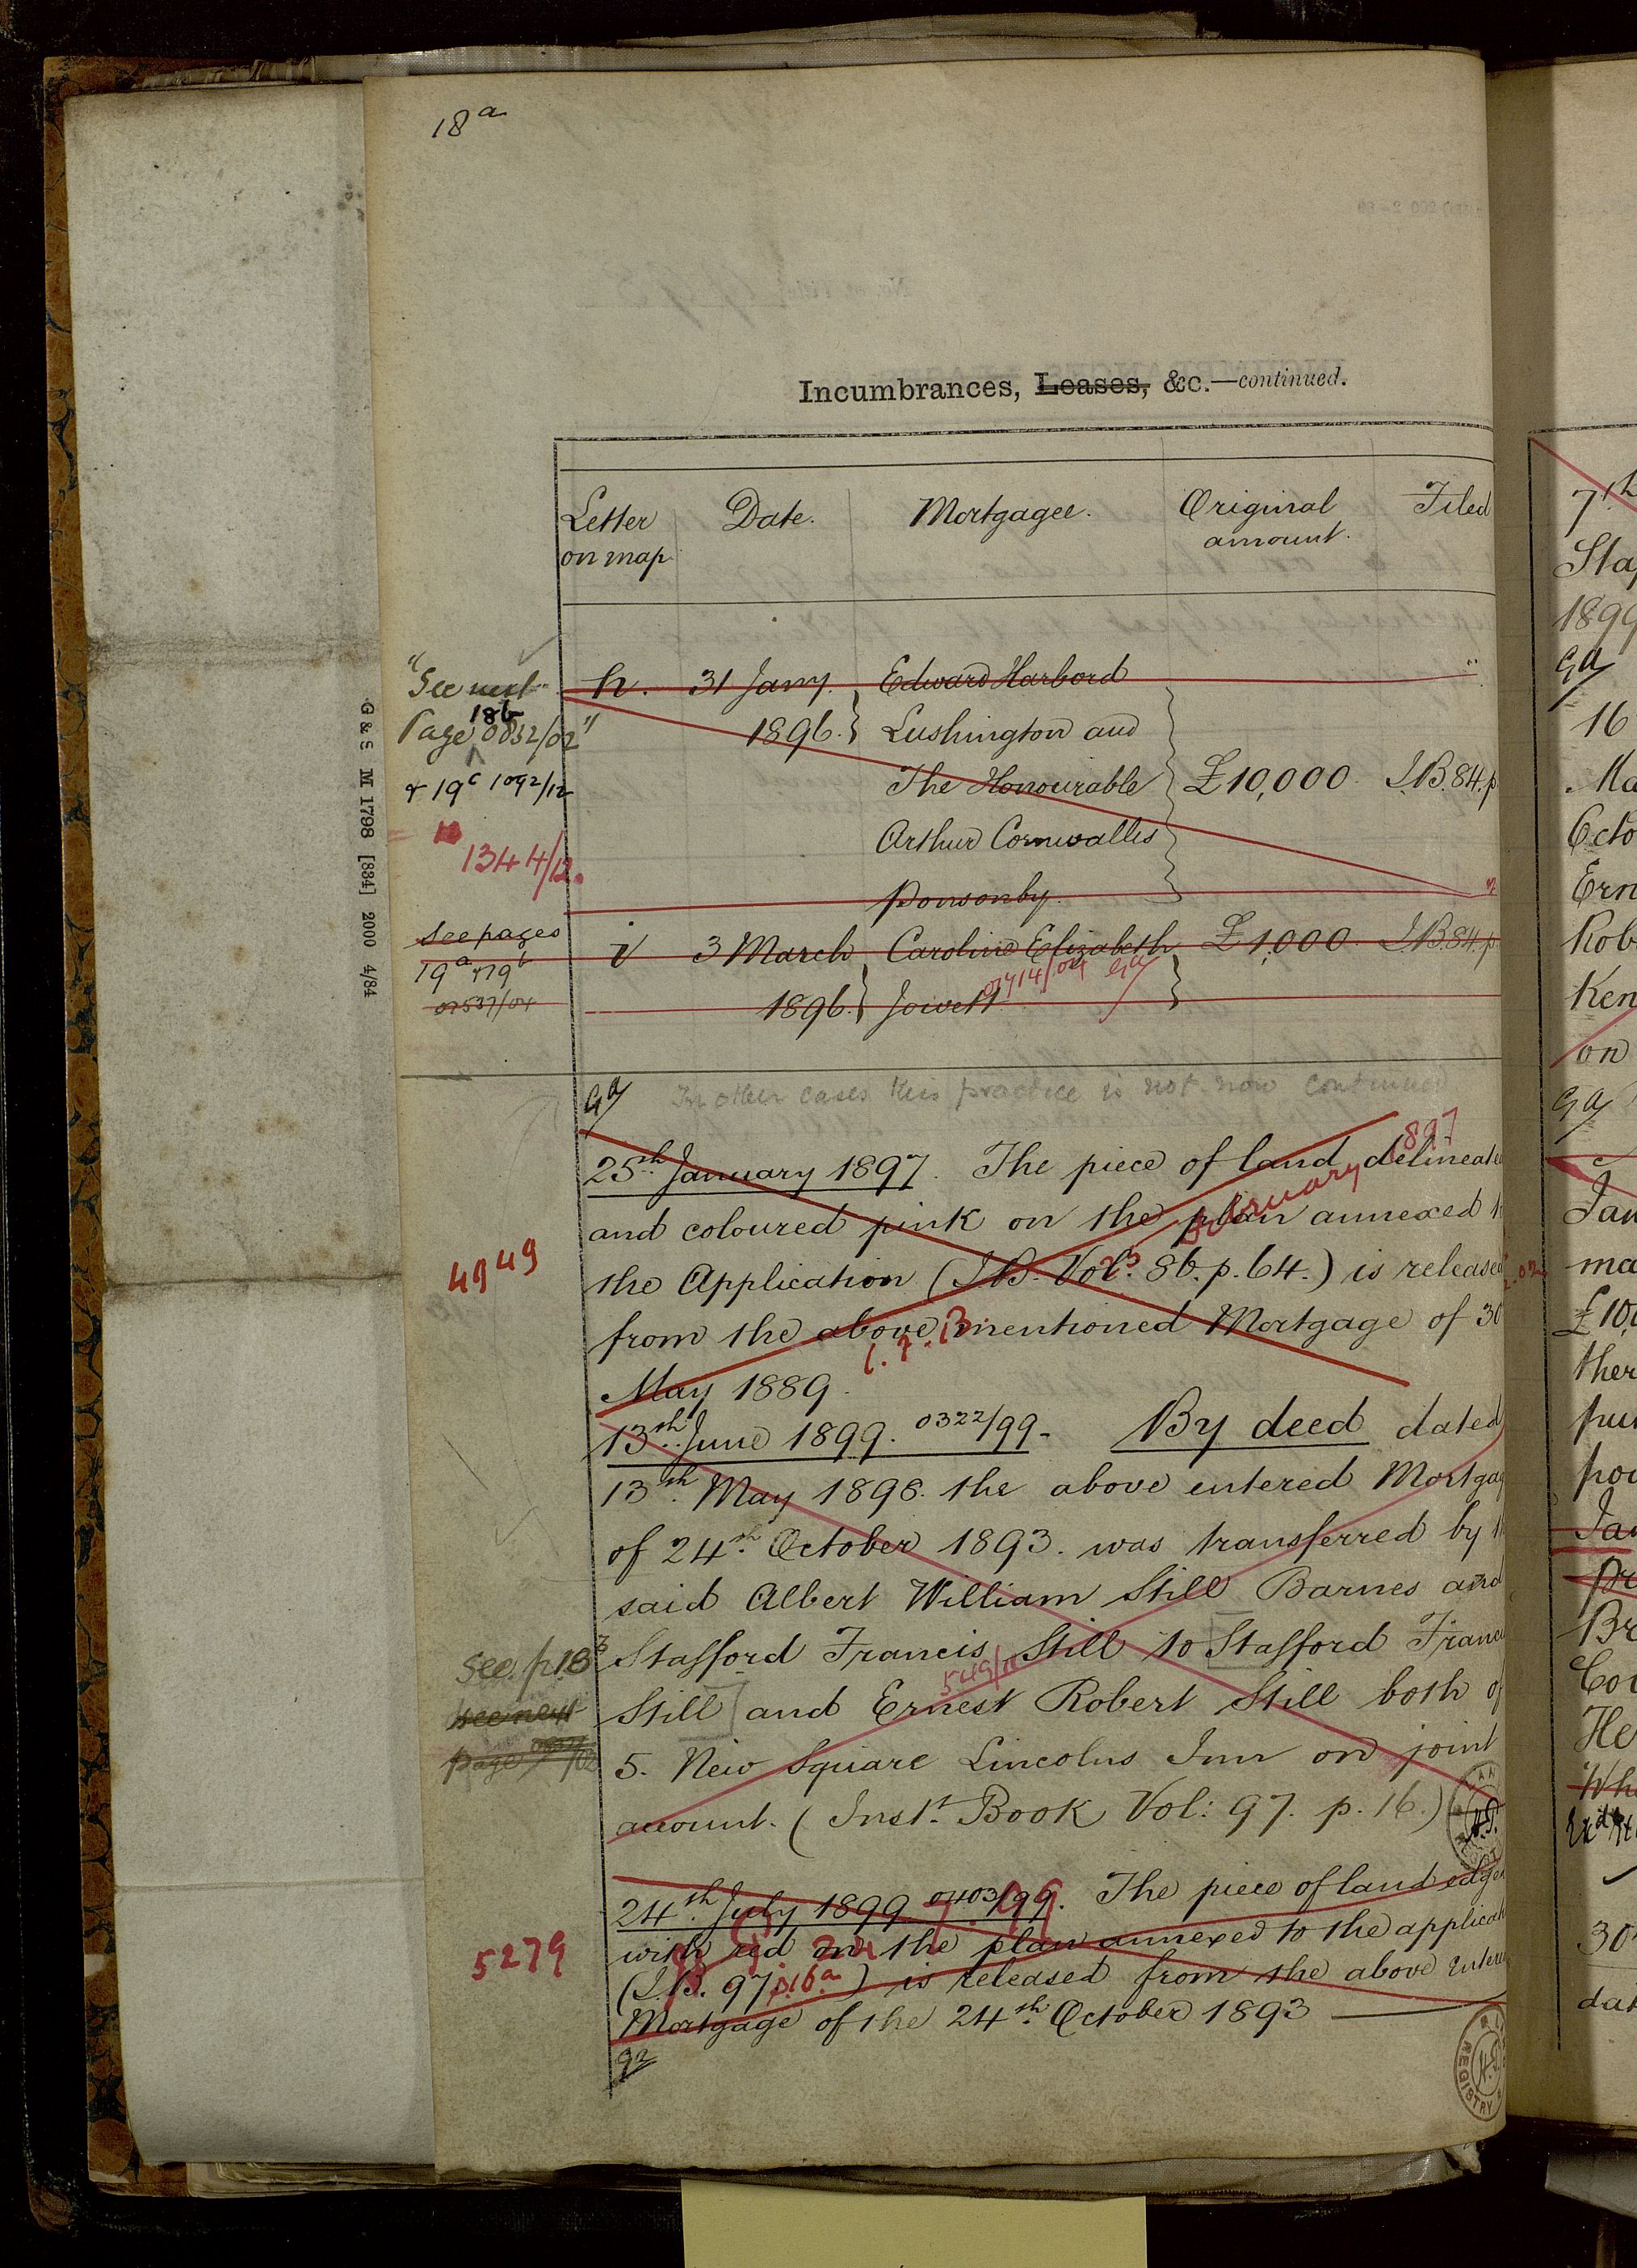 18 a
Incumbrances, Leases, &c.—continued.
Letter on map
Date.
Mortgagee.
Original amount.
Filed
"See next
Page 18b 0832/02"
& 19c 1092/12
1344/12.
h. 31 Jany. Edward Harbord
1896. Lushington and
The Honourable £10,000. I.B. 84. p
Arthur Cornwallis
Ponsonby.
See pages
19a & 19b
i 3 March Caroline Elizabeth £1,000. I.B. 84. p
1896. Jowett
G & S M 1798 [884] 2000 4/84
In other cases this practice is not now continued
25th January 1897. The piece of land delineate
and coloured pink on the plan annexed t
4949
the Application (I.B. Vol. 86. p. 64.) is released
from the above mentioned Mortgage of 30
May 1889.
February 1897
13th June 1899. 0322/99. By deed dated
13th May 1898. the above entered Mortgag
of 24th October 1893. was transferred by th
said Albert William Still Barnes and
See p. 18b
Stafford Francis Still to Stafford Franc
see next
page
Still and Ernest Robert Still both of
5. New Square Lincolns Inn on joint
account. (Inst. Book Vol: 97. p. 16.)
24th July 1899 0403/99. The piece of land edge
5279
with red on the plan annexed to the applicat
(I.B. 97 p. 16a) is released from the above entere
Mortgage of the 24th October 1893
REGISTRY
7th
Sta
1899
16
Ma
Octo
Ern
Rob
Ken
on
Jan
ma
£10,
ther
pu
Jan
Br
Cou
He
Wh
30
dat